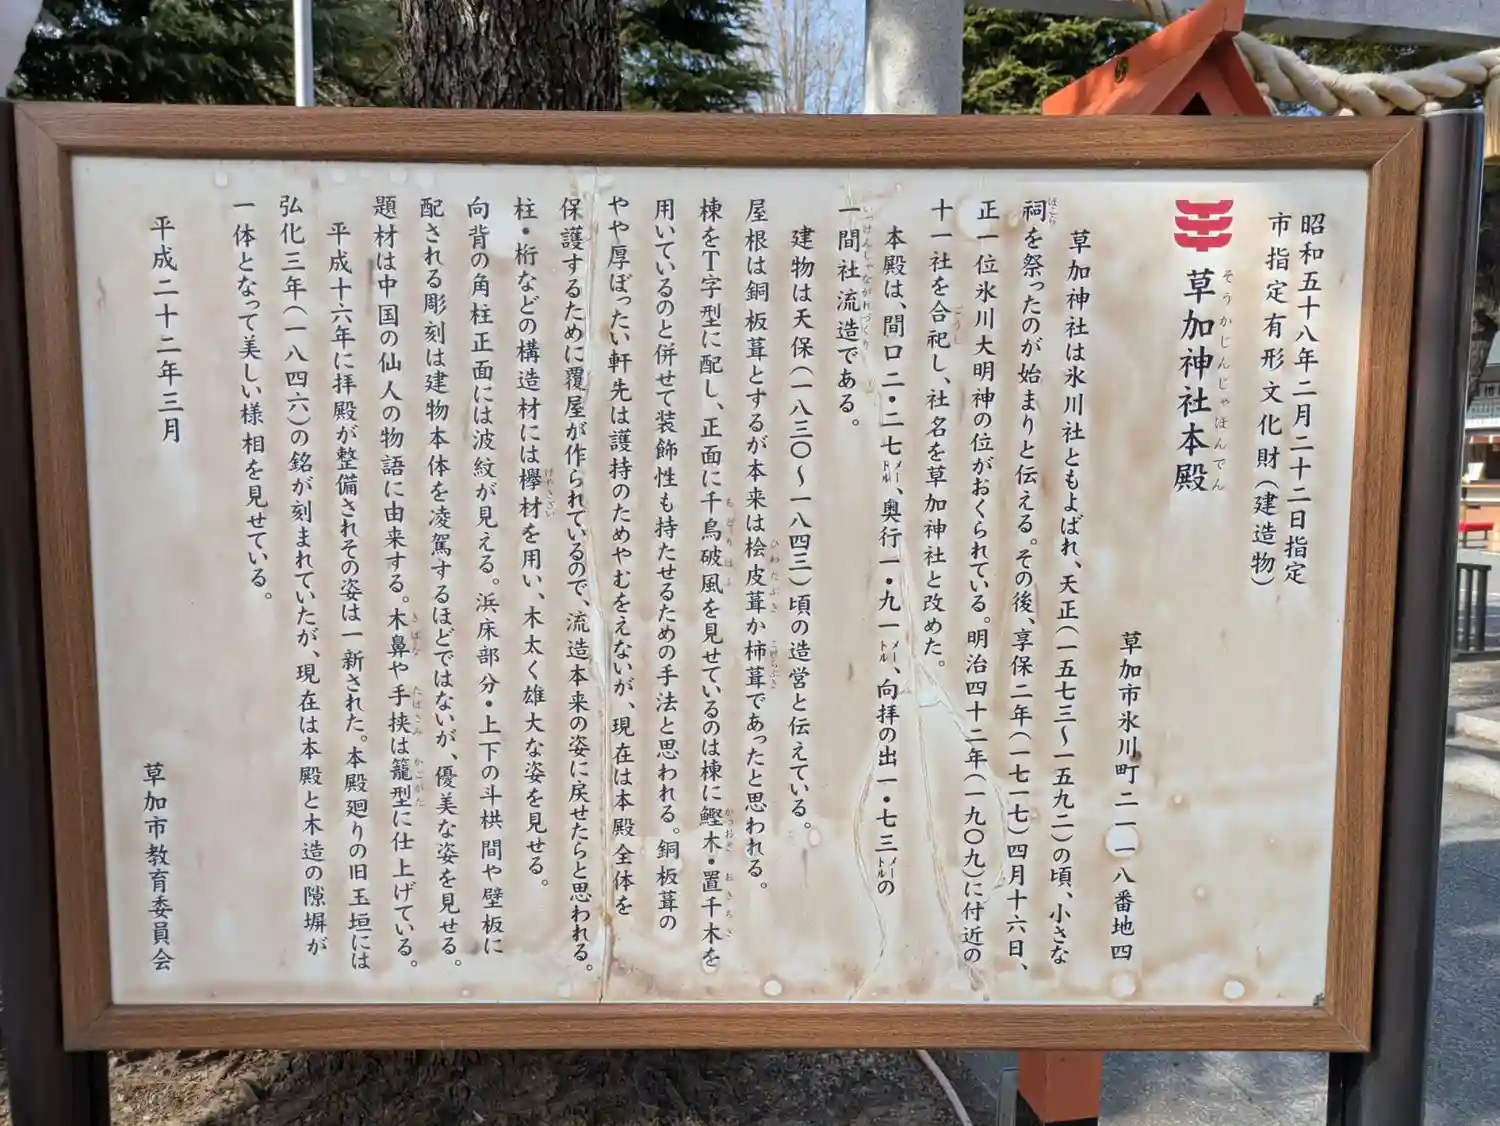 昭和五十八年二月二十二日指定
市指定有形文化財（建造物）
草加神社本殿
そうかじんじゃほんでん
草加市氷川町二一一八番地四
草加神社は氷川社ともよばれ、天正（一五七三～一五九二）の頃、小さな
祠を祭ったのが始まりと伝える。その後、享保二年（一七一七）四月十六日、
ほこら
正一位氷川大明神の位がおくられている。明治四十二年（一九〇九）に付近の
十一社を合祀し、社名を草加神社と改めた。
ごうし
本殿は、間口二・二七メートル、奥行一・九一メートル、向拝の出一・七三メートルの
一間社流造である。
いっけんしゃながれづくり
建物は天保（一八三〇～一八四三）頃の造営と伝えている。
屋根は銅板葺とするが本来は桧皮葺か柿葺であったと思われる。
ひわだぶき
こけらぶき
棟をT字型に配し、正面に千鳥破風を見せているのは棟に鰹木・置千木を
ちどりはふ
かつおぎ
おきちぎ
用いているのと併せて装飾性も持たせるための手法と思われる。銅板葺の
やや厚ぼったい軒先は護持のためやむをえないが、現在は本殿全体を
保護するために覆屋が作られているので、流造本来の姿に戻せたらと思われる。
柱・桁などの構造材には欅材を用い、木太く雄大な姿を見せる。
けやきざい
向背の角柱正面には波紋が見える。浜床部分・上下の斗栱間や壁板に
配される彫刻は建物本体を凌駕するほどではないが、優美な姿を見せる。
題材は中国の仙人の物語に由来する。木鼻や手挟は籠型に仕上げている。
きばな
たばさみ
かごがた
平成十六年に拝殿が整備されその姿は一新された。本殿廻りの旧玉垣には
弘化三年（一八四六）の銘が刻まれていたが、現在は本殿と木造の隙塀が
一体となって美しい様相を見せている。
平成二十二年三月
草加市教育委員会